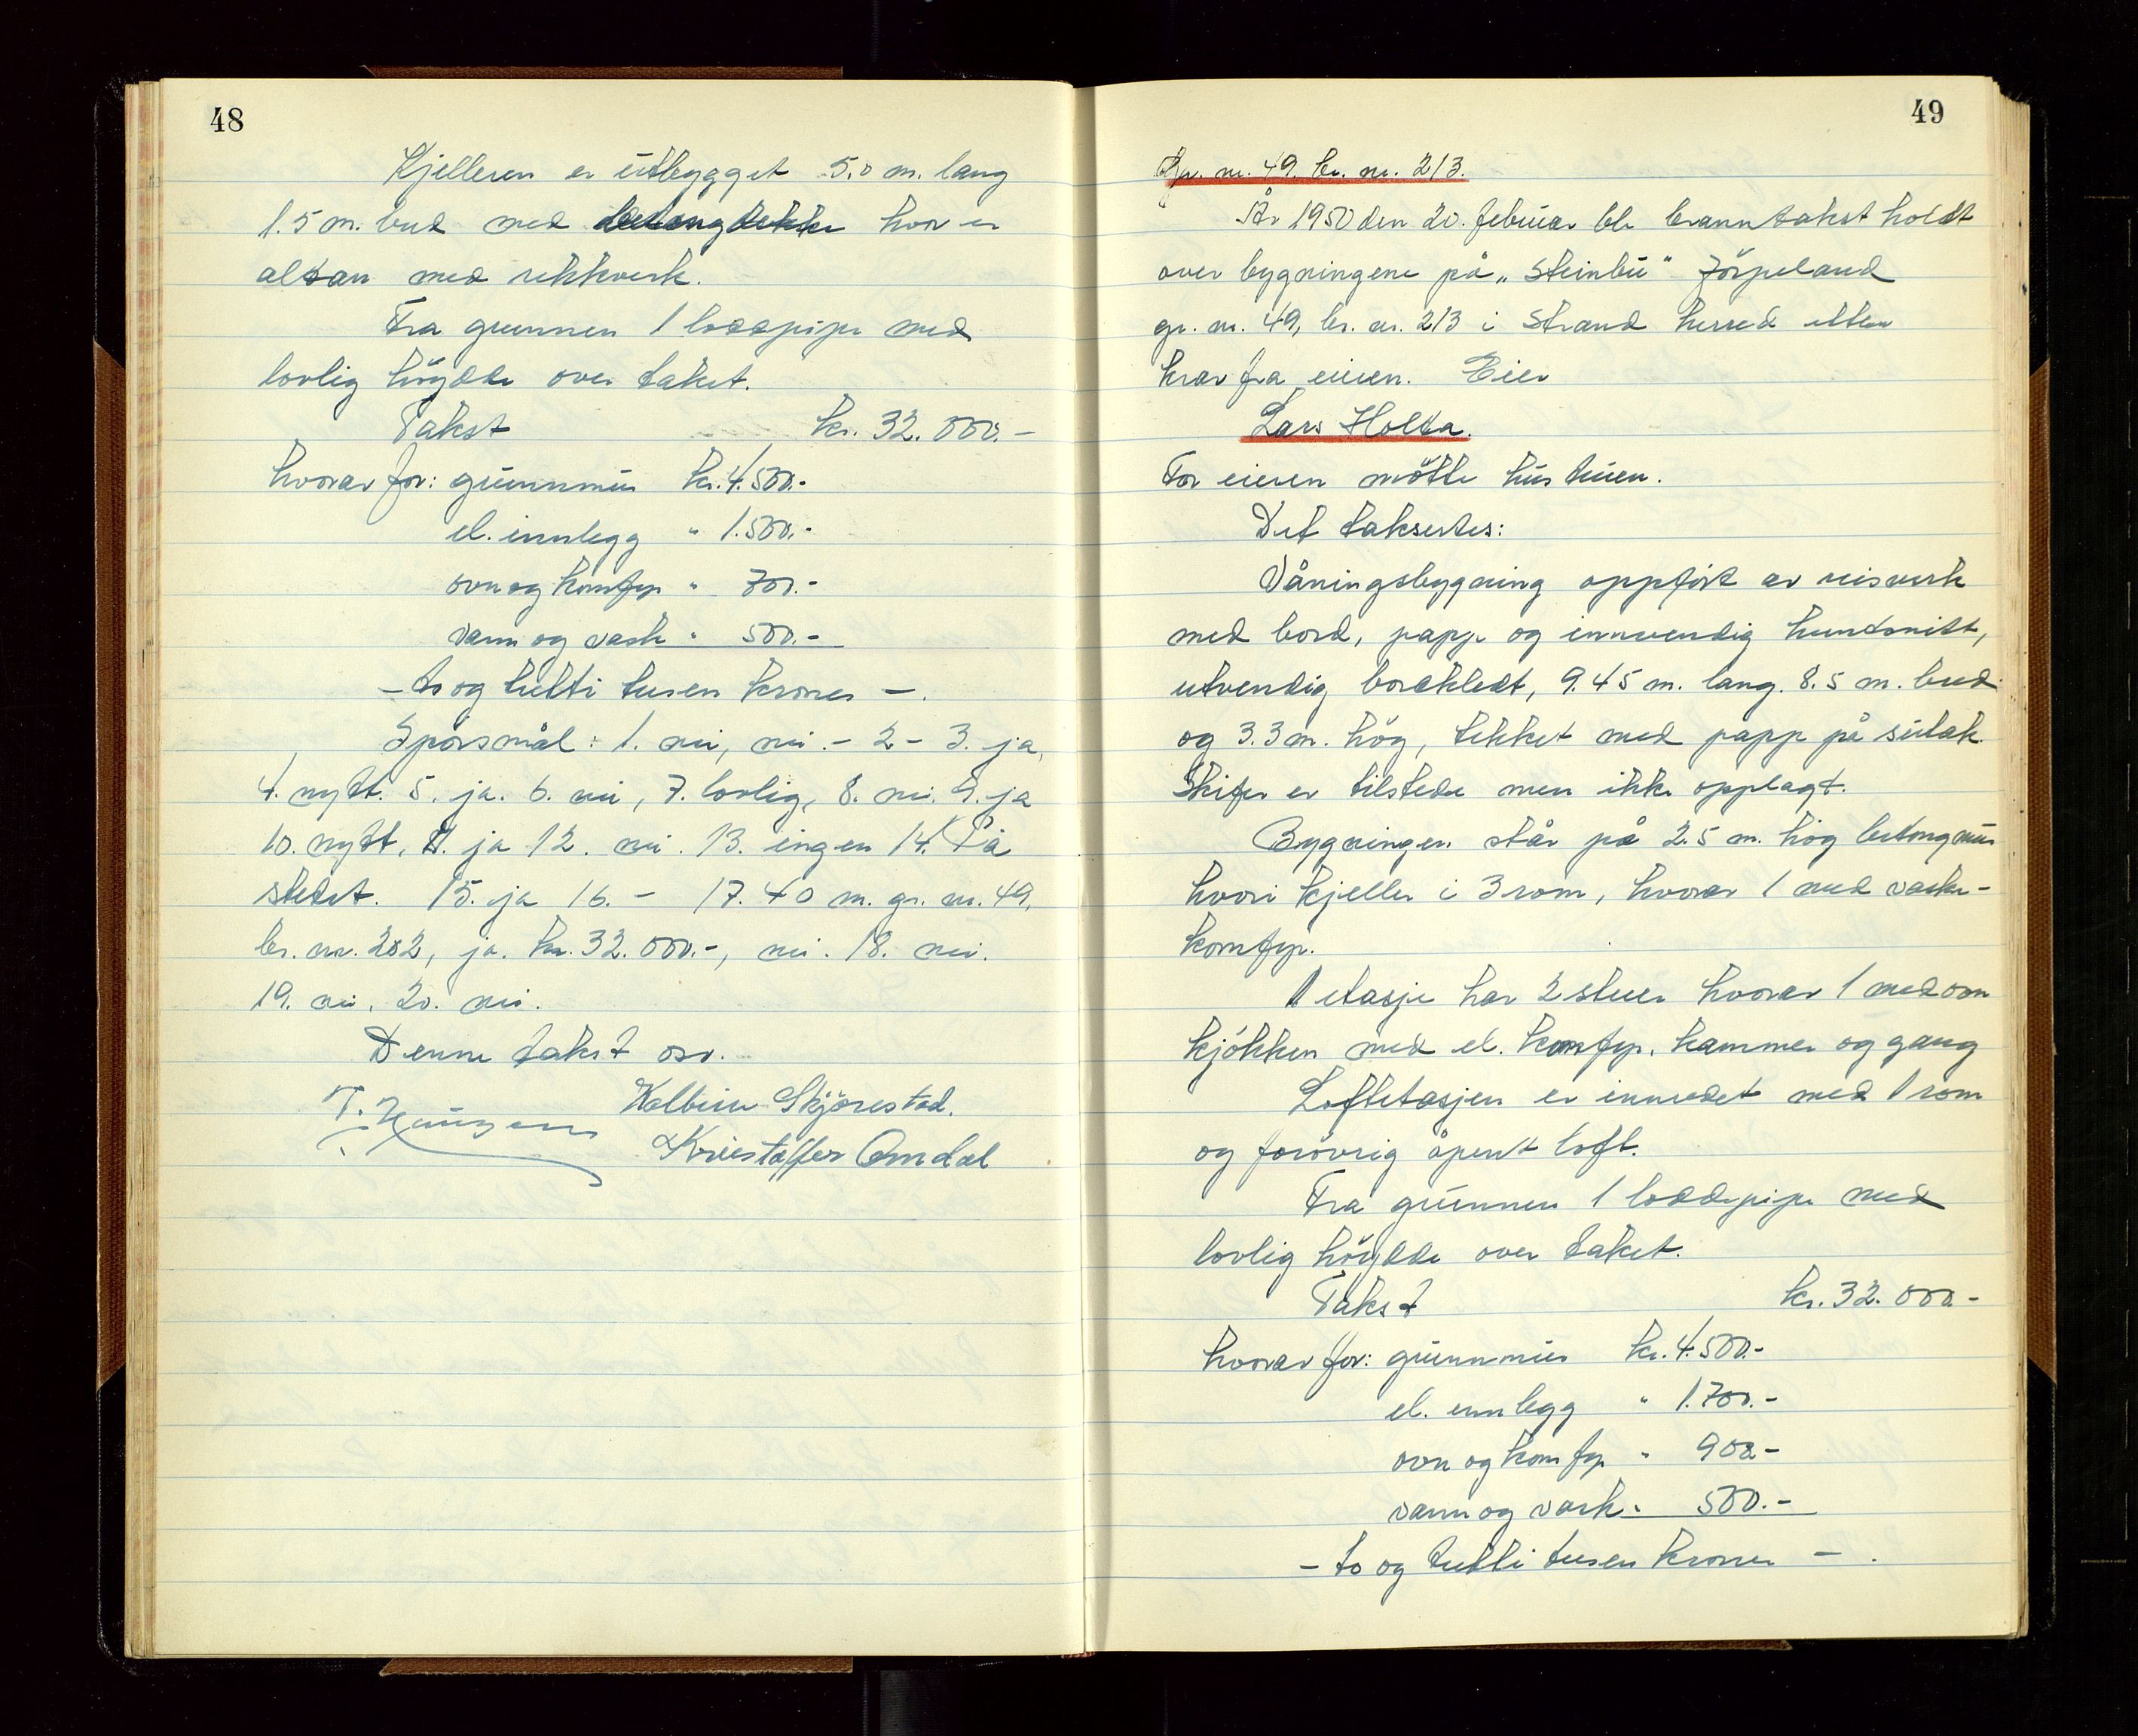 48
Kjelleren er utbygget 5.0 m. lang
1.5 m. bred med betongdekke hvor er
altan med rekkverk.
Fra grunnen 1 loddpipe med
lovlig höydde over taket.
Takst kr. 32.000.-
hvorav for: grunnmur kr. 4.500.-
el. innlegg " 1.500.-
ovn og komfyr " 700.-
vann og vask " 500.-
- to og tretti tusen kroner -.
Spörsmål: 1. nei, nei. - 2 - 3. ja,
4. nytt. 5. ja. 6. nei, 7. lovlig, 8. nei. 9. ja
10. nytt. 11. ja 12. nei. 13. ingen 14. På
stedet. 15. ja 16. - 17. 40 m. gr. nr. 49,
br. nr. 202, ja. kr. 32.000.-, nei. 18. nei.
19. nei. 20. nei.
Denne takst osv.
T. Haugen Kolbein Skjörestad.
Kristoffer Omdal
49
Gr. nr. 49. br. nr. 213.
År 1950 den 20. februar ble branntakst holdt
over bygningene på „Steinbu" Jörpeland
gr. nr. 49, br. nr. 213 i Strand herred etter
krav fra eieren. Eier
Lars Holta.
For eieren mötte hustruen.
Det taksertes:
Våningsbygning oppfört av reisverk
med bord, papp og innvendig kundsnitt,
utvendig bordkledt, 9.45 m. lang. 8.5 m. bred
og 3.3 m. hög, tekket med papp på sutak.
Skifer er tilstede men ikke opplagt.
Bygningen står på 2.5 m. hög betongmur
hvori kjeller i 3 rom, hvorav 1 med vaske-
komfyr.
1 etasje har 2 stuer hvorav 1 med ovn
kjökken med el. komfyr, kammer og gang
Loftetasjen er innredet med 1 rom
og forövrig åpent loft.
Fra grunnen 1 loddepipe med
lovlig höydde over taket.
Takst kr. 32.000.-
hvorav for: grunnmur kr. 4.500.-
el. innlegg " 1.700.-
ovn og komfyr " 900.-
vann og vask " 500.-
- to og tretti tusen kroner - .